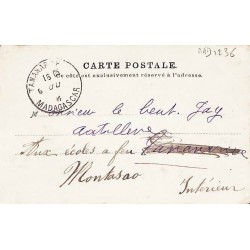 CARTE POSTALE.
Ce côté est exclusivement réservé à l'adresse.
TANANARIVE
MADAGASCAR
Monsieur le Lieut. Jay
artillerie
Aux écoles à feu Tananarive
Intérieur